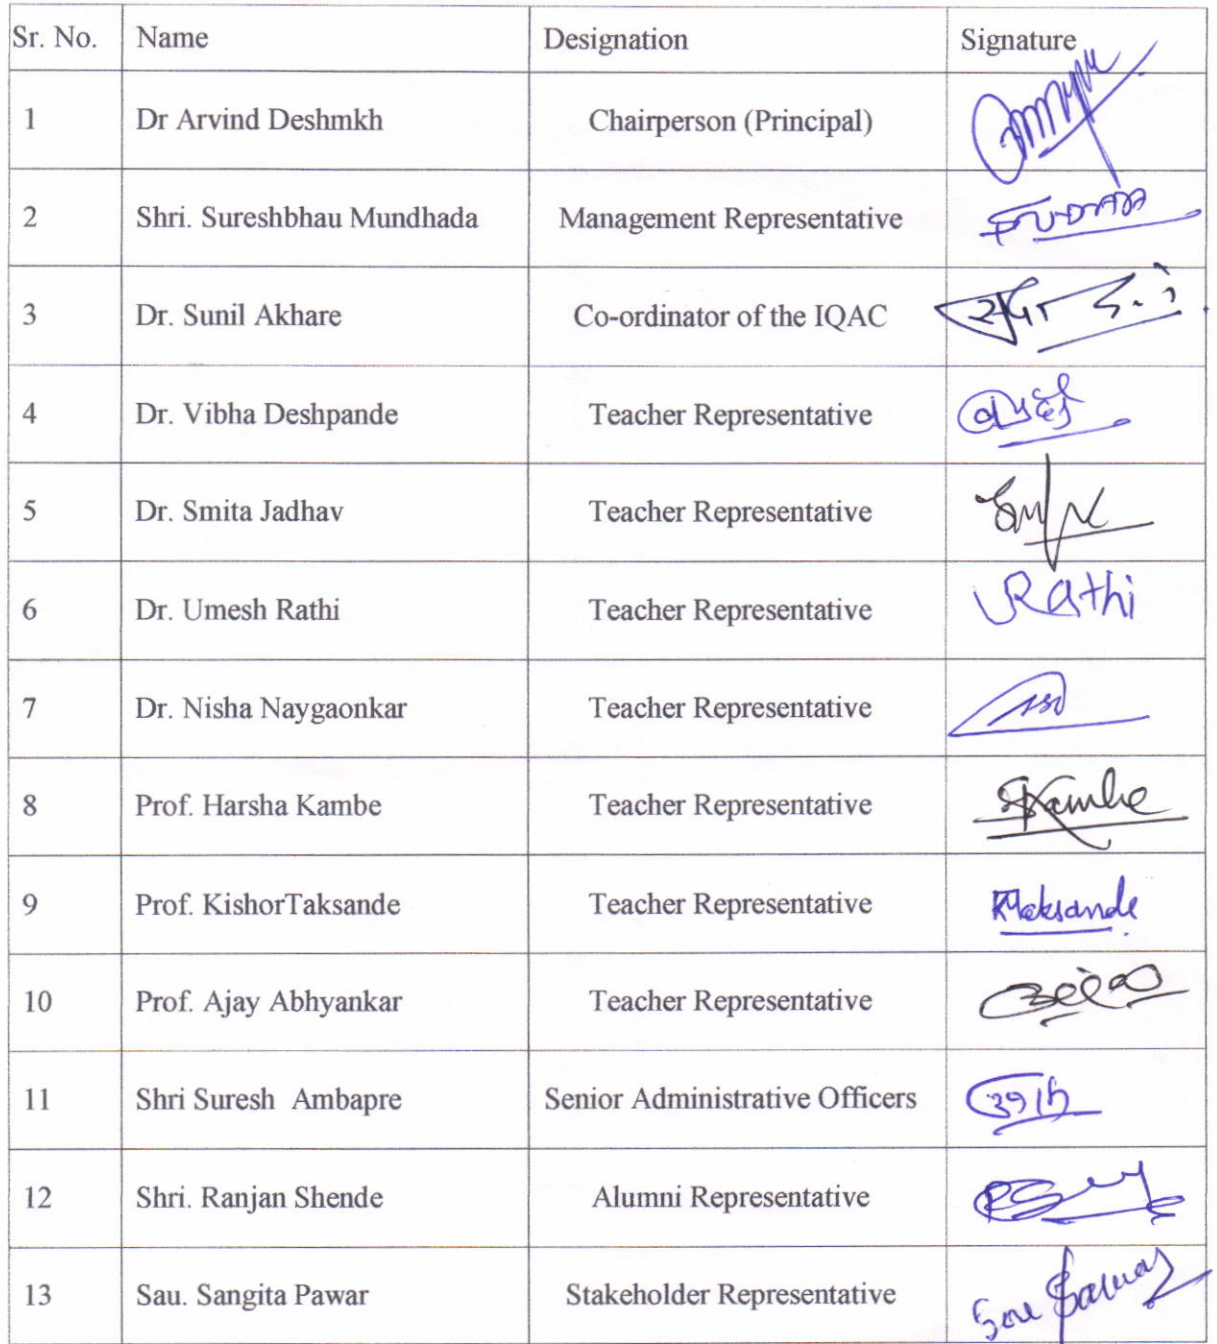 Sr. No. Name Designation Signature
1 Dr Arvind Deshmkh Chairperson (Principal)
2 Shri. Sureshbhau Mundhada Management Representative
3 Dr. Sunil Akhare Co-ordinator of the IQAC
4 Dr. Vibha Deshpande Teacher Representative
5 Dr. Smita Jadhav Teacher Representative
6 Dr. Umesh Rathi Teacher Representative Rathi
7 Dr. Nisha Naygaonkar Teacher Representative
8 Prof. Harsha Kambe Teacher Representative Kambe
9 Prof. KishorTaksande Teacher Representative KTaksande
10 Prof. Ajay Abhyankar Teacher Representative
11 Shri Suresh Ambapre Senior Administrative Officers
12 Shri. Ranjan Shende Alumni Representative
13 Sau. Sangita Pawar Stakeholder Representative